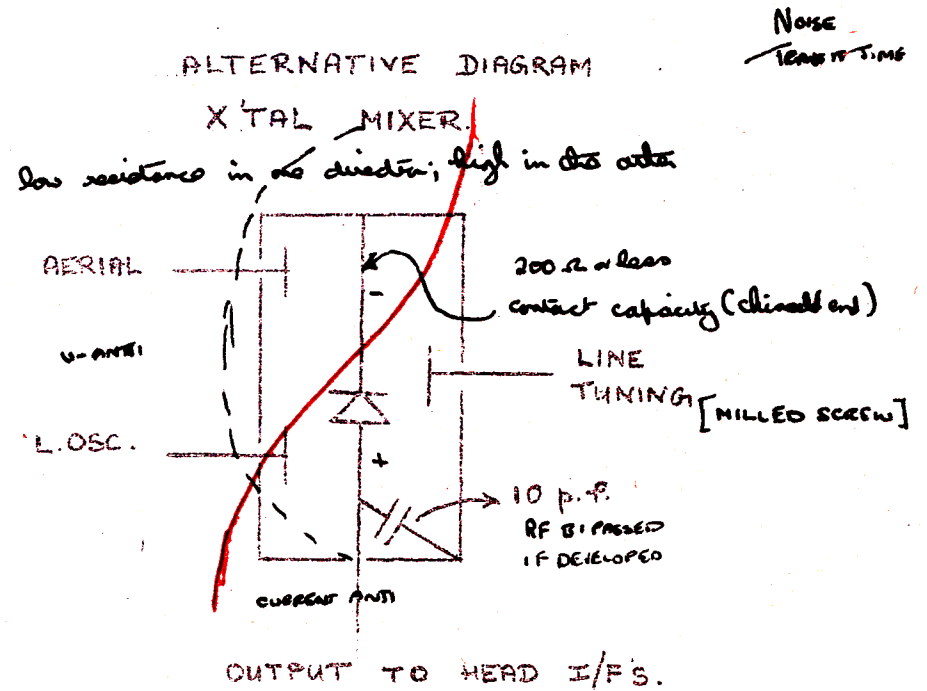 NOISE
TRANSIT TIME
ALTERNATIVE DIAGRAM
X'TAL MIXER.
low resistance in one direction; high in the other
AERIAL
200 Ω or less
-
contact capacity (
end)
V-ANTI
LINE
TUNING
[MILLED SCREW]
L.OSC.
+
10 p.f.
RF BIPASSED
IF DEVELOPED
CURRENT ANTI
OUTPUT TO HEAD I/F'S.